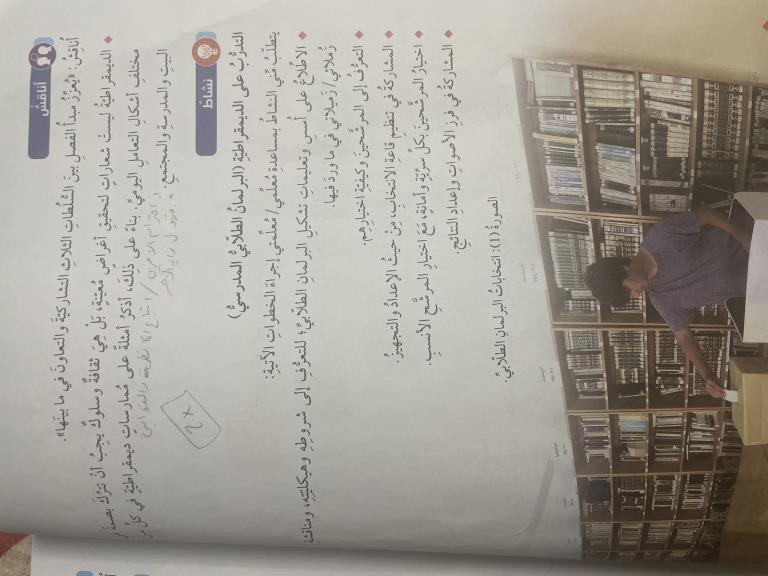 أناقش
أُناقِشُ: «يُعزِّزُ مبدأُ الفصلِ بينَ السُّلُطاتِ الثلاثِ التشاركيّةَ والتعاونَ في ما بينَها».
الديمقراطيةُ ليستْ شعاراتٍ لتحقيقِ أغراضٍ معيّنةٍ، بلْ هيَ ثقافةٌ وسلوكٌ يجبُ أنْ تتركَ بصمةً
مختلفِ أشكالِ التعاملِ اليوميِّ. بناءً على ذلكَ، أذكرُ أمثلةً على ممارساتٍ ديمقراطيةٍ في كلٍّ منَ
البيتِ والمدرسةِ والمجتمعِ.
نشاطٌ
التدرُّبُ على الديمقراطيةِ (البرلمانُ الطلّابيُّ المدرسيُّ)
يتطلّبُ منّي النشاطُ بمساعدةِ مُعلّمي/ مُعلّمتي إجراءَ الخطواتِ الآتيةِ:
الاطّلاعُ على أسسِ وتعليماتِ تشكيلِ البرلمانِ الطلّابيِّ؛ للتعرُّفِ إلى شروطِهِ وهيكليّتِهِ، ومناقشةُ
زملائي/ زميلاتي في ما وردَ فيها.
التعرُّفُ إلى المرشّحينَ وكيفيّةِ اختيارِهِم.
المشاركةُ في تنظيمِ قاعةِ الانتخابِ، منْ حيثُ الإعدادُ والتجهيزُ.
اختيارُ المرشّحينَ بكلِّ سرّيّةٍ وأمانةٍ، معَ اختيارِ المرشّحِ الأنسبِ.
المشاركةُ في فرزِ الأصواتِ وإعدادِ النتائجِ.
الصورةُ (1): انتخاباتُ البرلمانِ الطلّابيِّ.